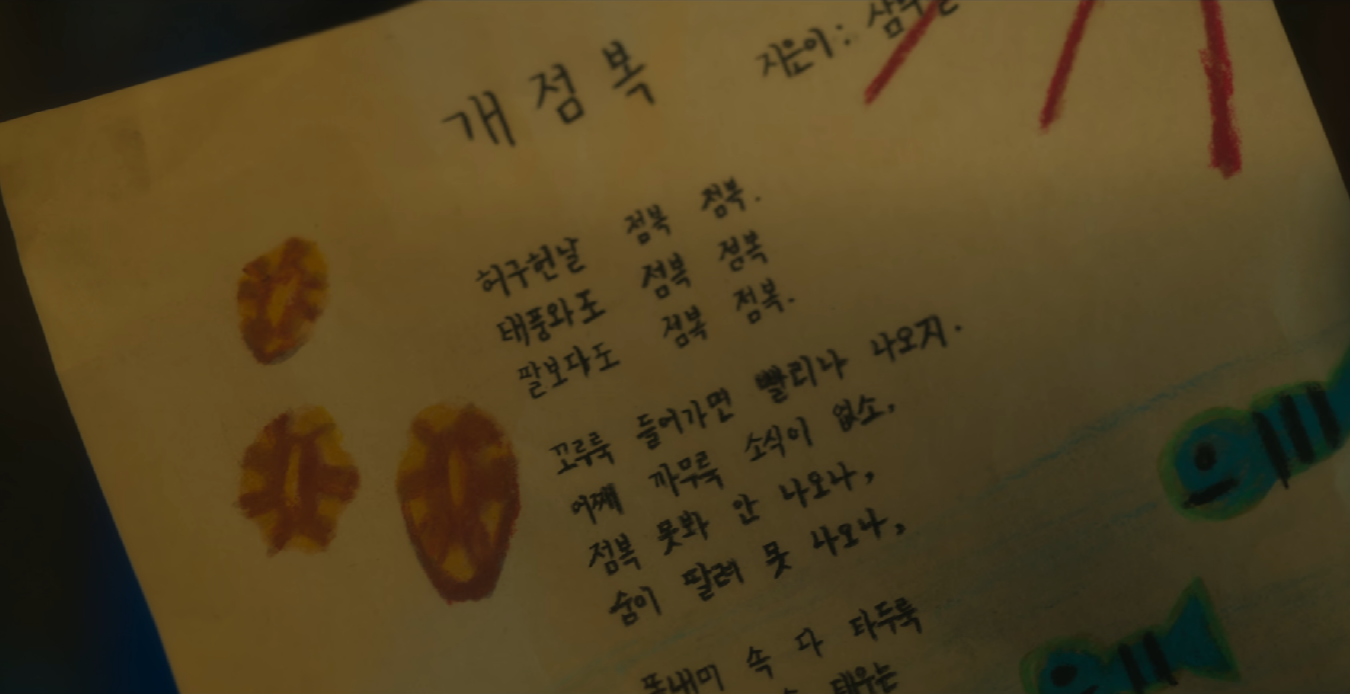 개점복
지은이:
허구헌날 점복 점복.
태풍와도 점복 점복
딸보다도 점복 점복.
꼬루룩 들어가면 빨리나 나오지.
어째 까무룩 소식이 없소,
점복 못봐 안 나오나,
숨이 딸려 못 나오나,
똘내미 속 다 타두룩
태우는